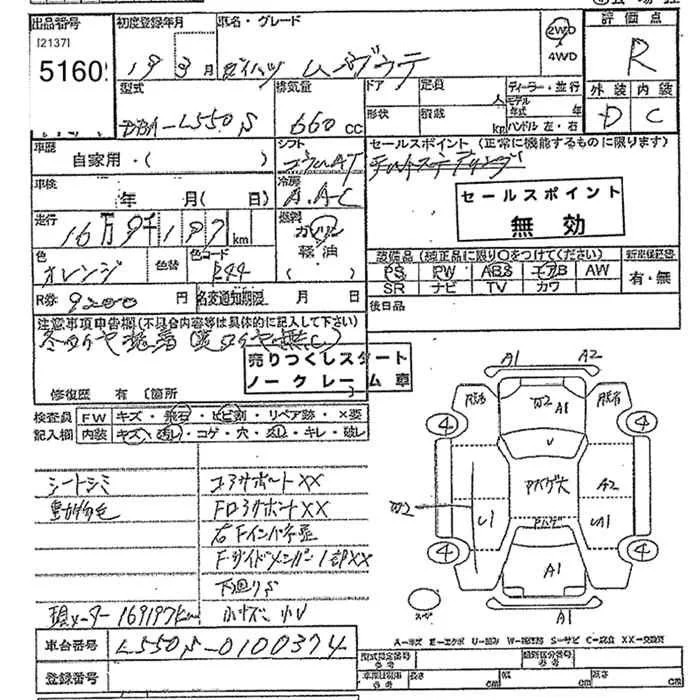 出品番号 初度登録年月 車名・グレード 2WD 4WD 評価点
[2137]
5160 19 3月 ダイハツ ムーヴラテ R
外装 内装
D C
型式 排気量 ドア 定員 人 ディーラー・並行
DBA-L550S 660cc 形状 積載 kg モデル年式 年 ハンドル 左・右
車歴 自家用・( ) シフト コラムAT セールスポイント (正常に機能するものに限ります)
車検 年 月( 日) 冷房 A.A-C
セールスポイント
無効
走行 16万9千197km 燃料 ガソリン 軽油
色 オレンジ 色替 色コード R44
設備品 (純正品に限り○をつけてください) 新車保証書
PS PW ABS エアB AW 有・無
SR ナビ TV カワ
R券 9200円 名変通知期限 月 日 後日品
注意事項申告欄(不具合内容等は具体的に記入して下さい)
冬タイヤ装着(夏タイヤ無し)
売りつくしスタート
ノークレーム車
修復歴 有 〔箇所 〕
検査員 FW キズ・飛石・ヒビ割・リペア跡・×要
記入欄 内装 キズ・汚レ・コゲ・穴・スレ・キレ・破レ
シートシミ コアサポートXX
動物毛 Fロアサポート XX
右Fインパネ歪
Fサイドメンバー1部XX
下廻りS
現メーター 169197km 小キズ 小U
A1 A2
W2 A1
4 4
U
アバゲ大 A2
W2 U1
アバゲ
4 4
A1
スペア A1
A-キズ E-エクボ U-凹み W-補修跡 S-サビ C-腐食 XX-交換済
車台番号 L550S-0100374
登録番号
型式指定番号 参考 類別区分番号 参考
長さ cm 幅 cm 高さ cm